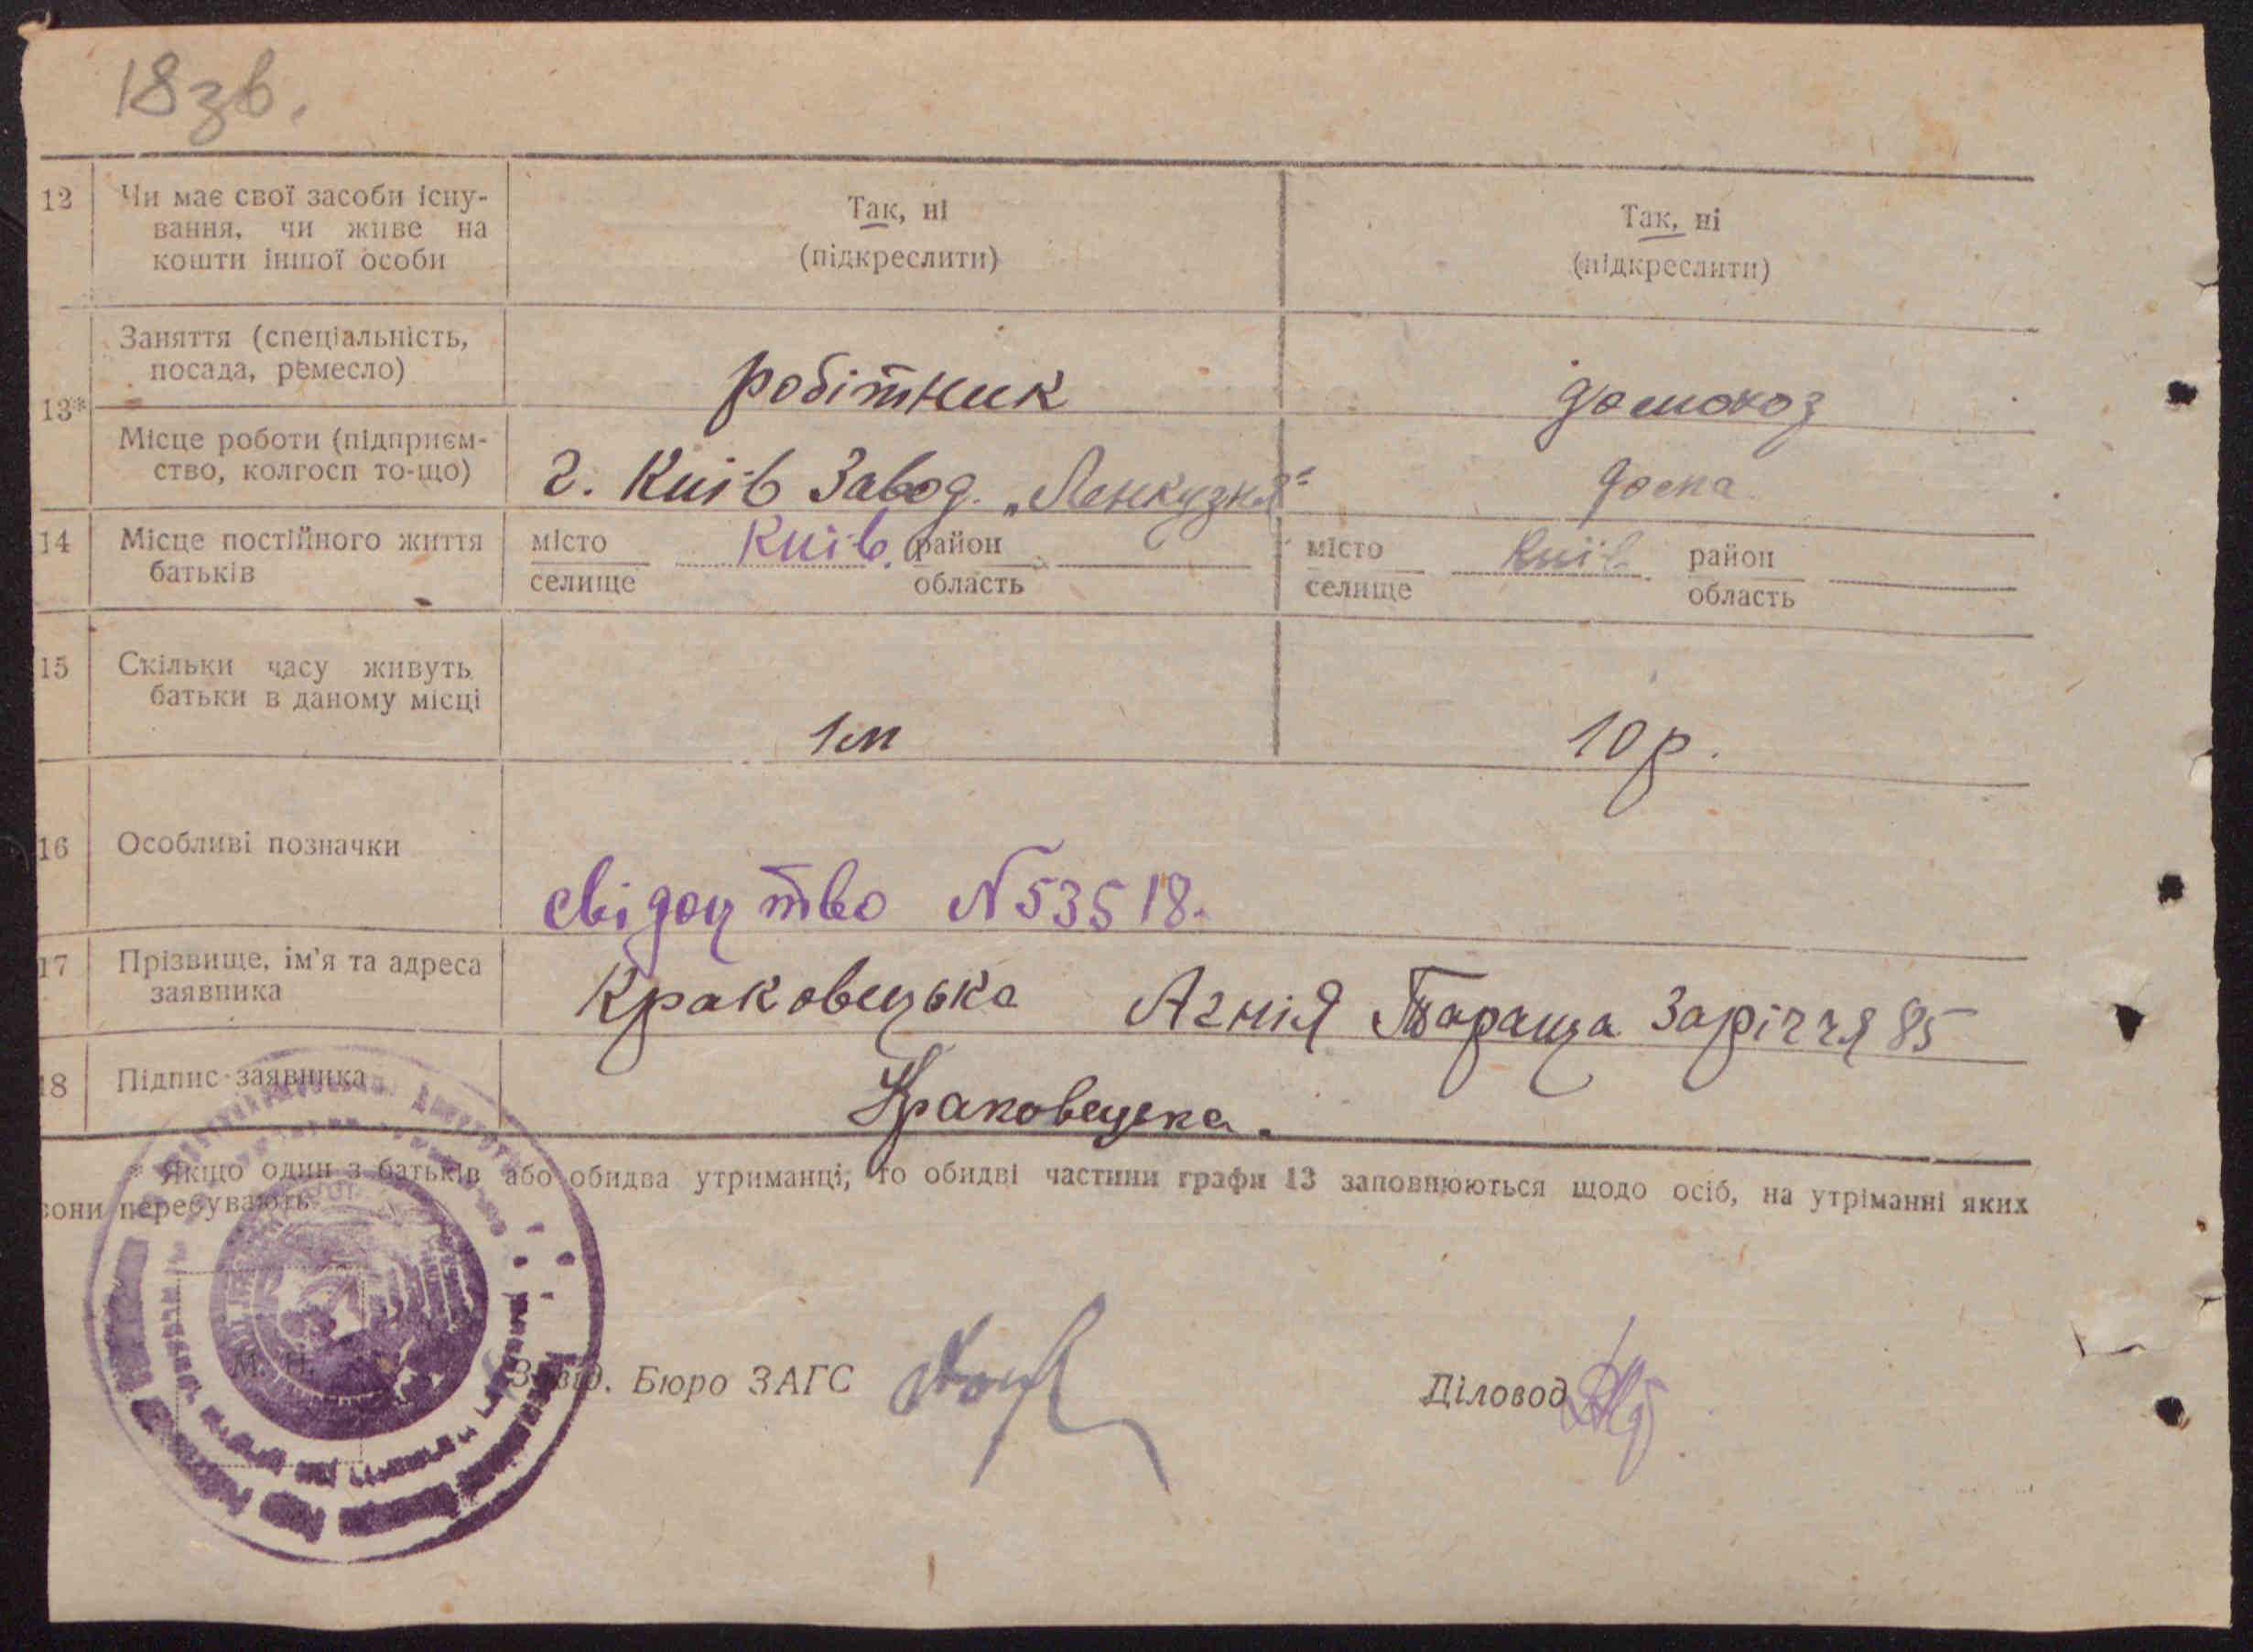 18зв.
12 Чи має свої засоби існу-
вання, чи живе на
кошти іншої особи
Так, ні
(підкреслити)
Так, ні
(підкреслити)
13*
Заняття (спеціальність,
посада, ремесло)
робітник
домохоз
Місце роботи (підприєм-
ство, колгосп то-що)
г. Київ Завод. „Ленкузня"
дома
14 Місце постійного життя
батьків
місто Київ. район
селище область
місто Київ район
селище область
15 Скільки часу живуть
батьки в даному місці
1м
10 р.
16 Особливі позначки
свідоцтво N 53518.
17 Прізвище, ім'я та адреса
заявника
Краковецька Агнія Тараща Заріччя 85
18 Підпис заявника
Краковецька.
* Якщо один з батьків або обидва утриманці, то обидві частини графи 13 заповнюються щодо осіб, на утріманні яких
вони перебувають.
М. П.
Завід. Бюро ЗАГС
Діловод